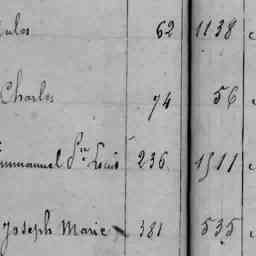 Jules 62 1138
Charles 74 56
Emmanuel Pre Louis 236 1511
Joseph Marie 381 535